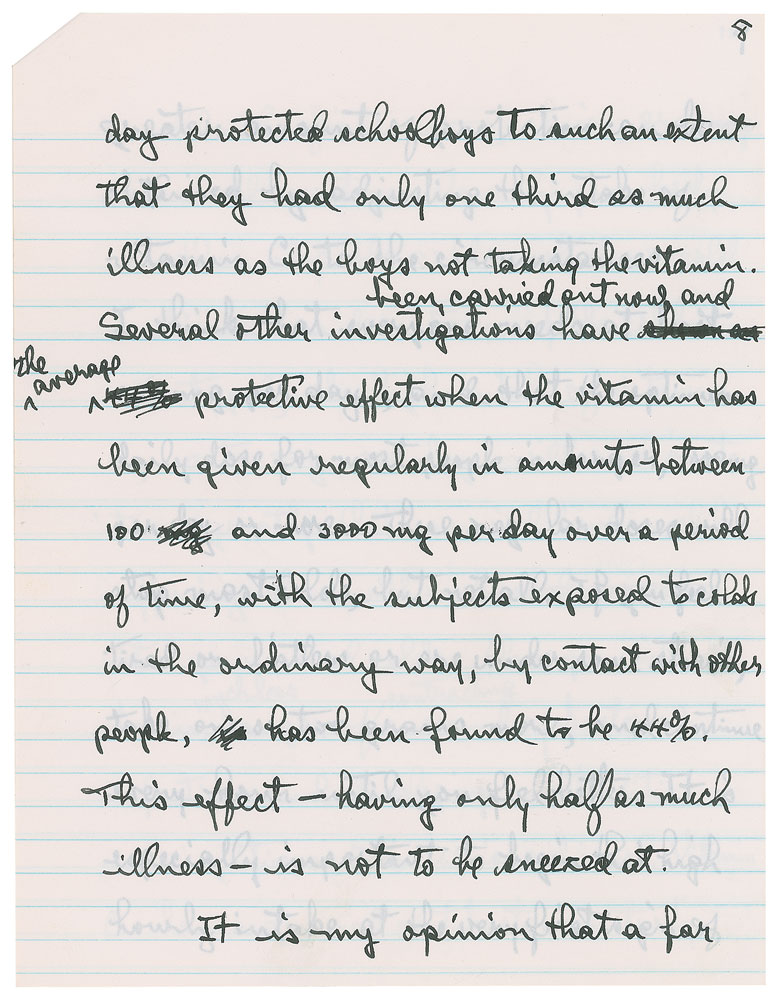 8
day protected schoolboys to such an extent
that they had only one third as much
illness as the boys not taking the vitamin.
been carried out now, and
Several other investigations have
the average
protective effect when the vitamin has
been given regularly in amounts between
100 and 3000 mg per day over a period
of time, with the subjects exposed to colds
in the ordinary way, by contact with other
people, has been found to be 44%.
This effect – having only half as much
illness – is not to be sneezed at.
It is my opinion that a far